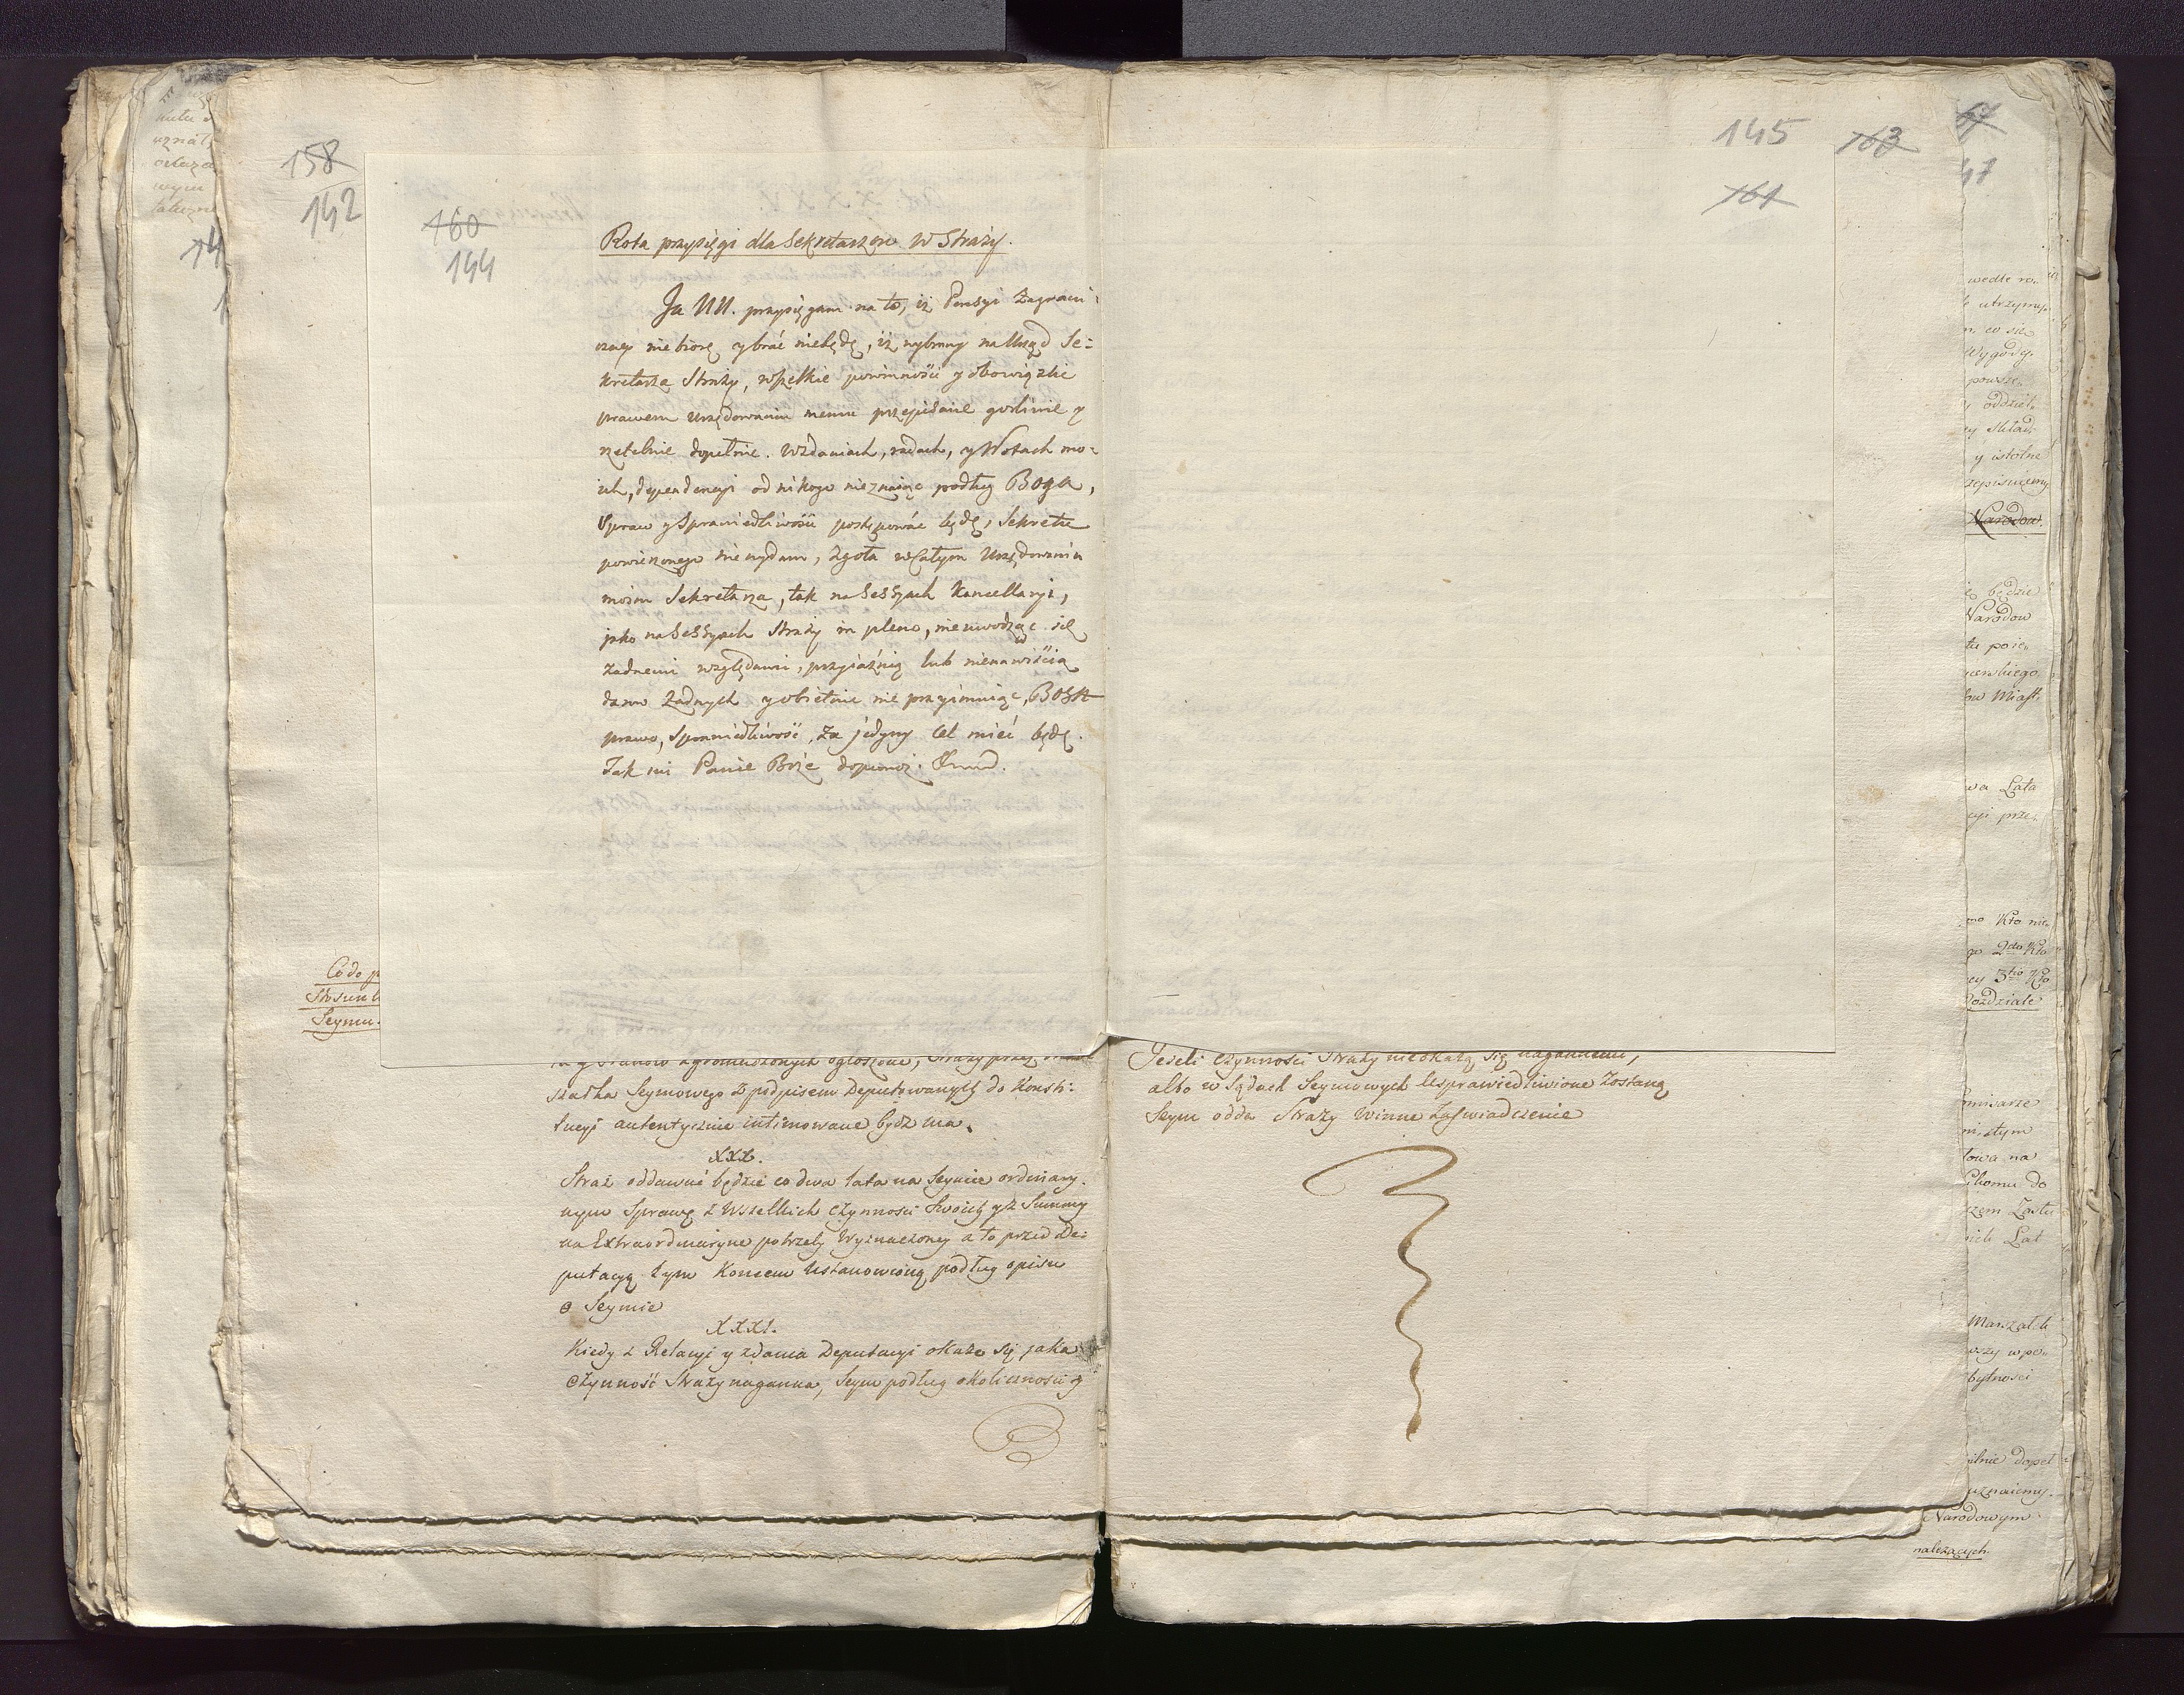 158
142
160
144
Rota przysięgi dla Sekretarzow w Straży.
Ja NN. przysięgam na to, iż Pensyi Zagrani:
czney nie biorę y brać niebędę, iż wybrany na Urząd Se:
kretarza Straży, wszelkie powinności y obowiązki
prawem Urzędowaniu memu przepisane godliwie y
rzetelnie dopełnie. W zdaniach, radach, y Wotach mo:
ich, dependencyi od nikogo nie znaiąc podług BOGA,
Spraw y Sprawiedliwości postępować będę, Sekretu
powierzonego nie wydam, zgoła w Całym Urzędowaniu
moim Sekretarza, tak na Sessyach Kancellaryi,
jako na Sessyach Straży in pleno, nie uwodząc się
żadnemi względami, przyiaźnią lub nienawiścią
darow żadnych y obietnic nie przyimuiąc, BOGA
prawo, Sprawiedliwość, za jedyny cel mieć będę.
Tak mi Panie Boże dopomoż.
Co do p
Stosunk
Seymu.
zgromadzonych ogłoszone, Straży przez
szałka Seymowego z podpisem Deputowanych do Konsti:
tucyi autentycznie intimowane bydz ma.
XXX.
Straż oddawać będzie co dwa lata na Seymie ordynary:
nym Sprawę z Wszelkich czynności Swoich y z Summy
na Extraordynaryine potrzeby Wyznaczoney a to przed De:
putacyą tym Koncem Ustanowioną podług opisu
o Seymie
XXXI.
Kiedy z Relacyi y zdania Deputacyi okaże się jaka
czynność Straży naganna, Seym podług okoliczności y
145
163
161
Jeżeli czynności Straży nie okażą się nagannemi,
albo w Sądach Seymowych Usprawiedliwione Zostaną
Seym odda Straży Winne Zaświadczenie
67
47
wedle ro.
utrzymy.
co się
Wygody.
powsze.
oddziel.
skład.
y istotne
Narodow.
będzie
Narodow
tu poie.
Miast.
wa Lata
cyi prze.
mo Kto nie.
go 2do Kto
ey 3tio Kto
Rozdziale
mmisarze
łowa na
Marszałek
bytności
uznaiemy.
Narodowym
należących.